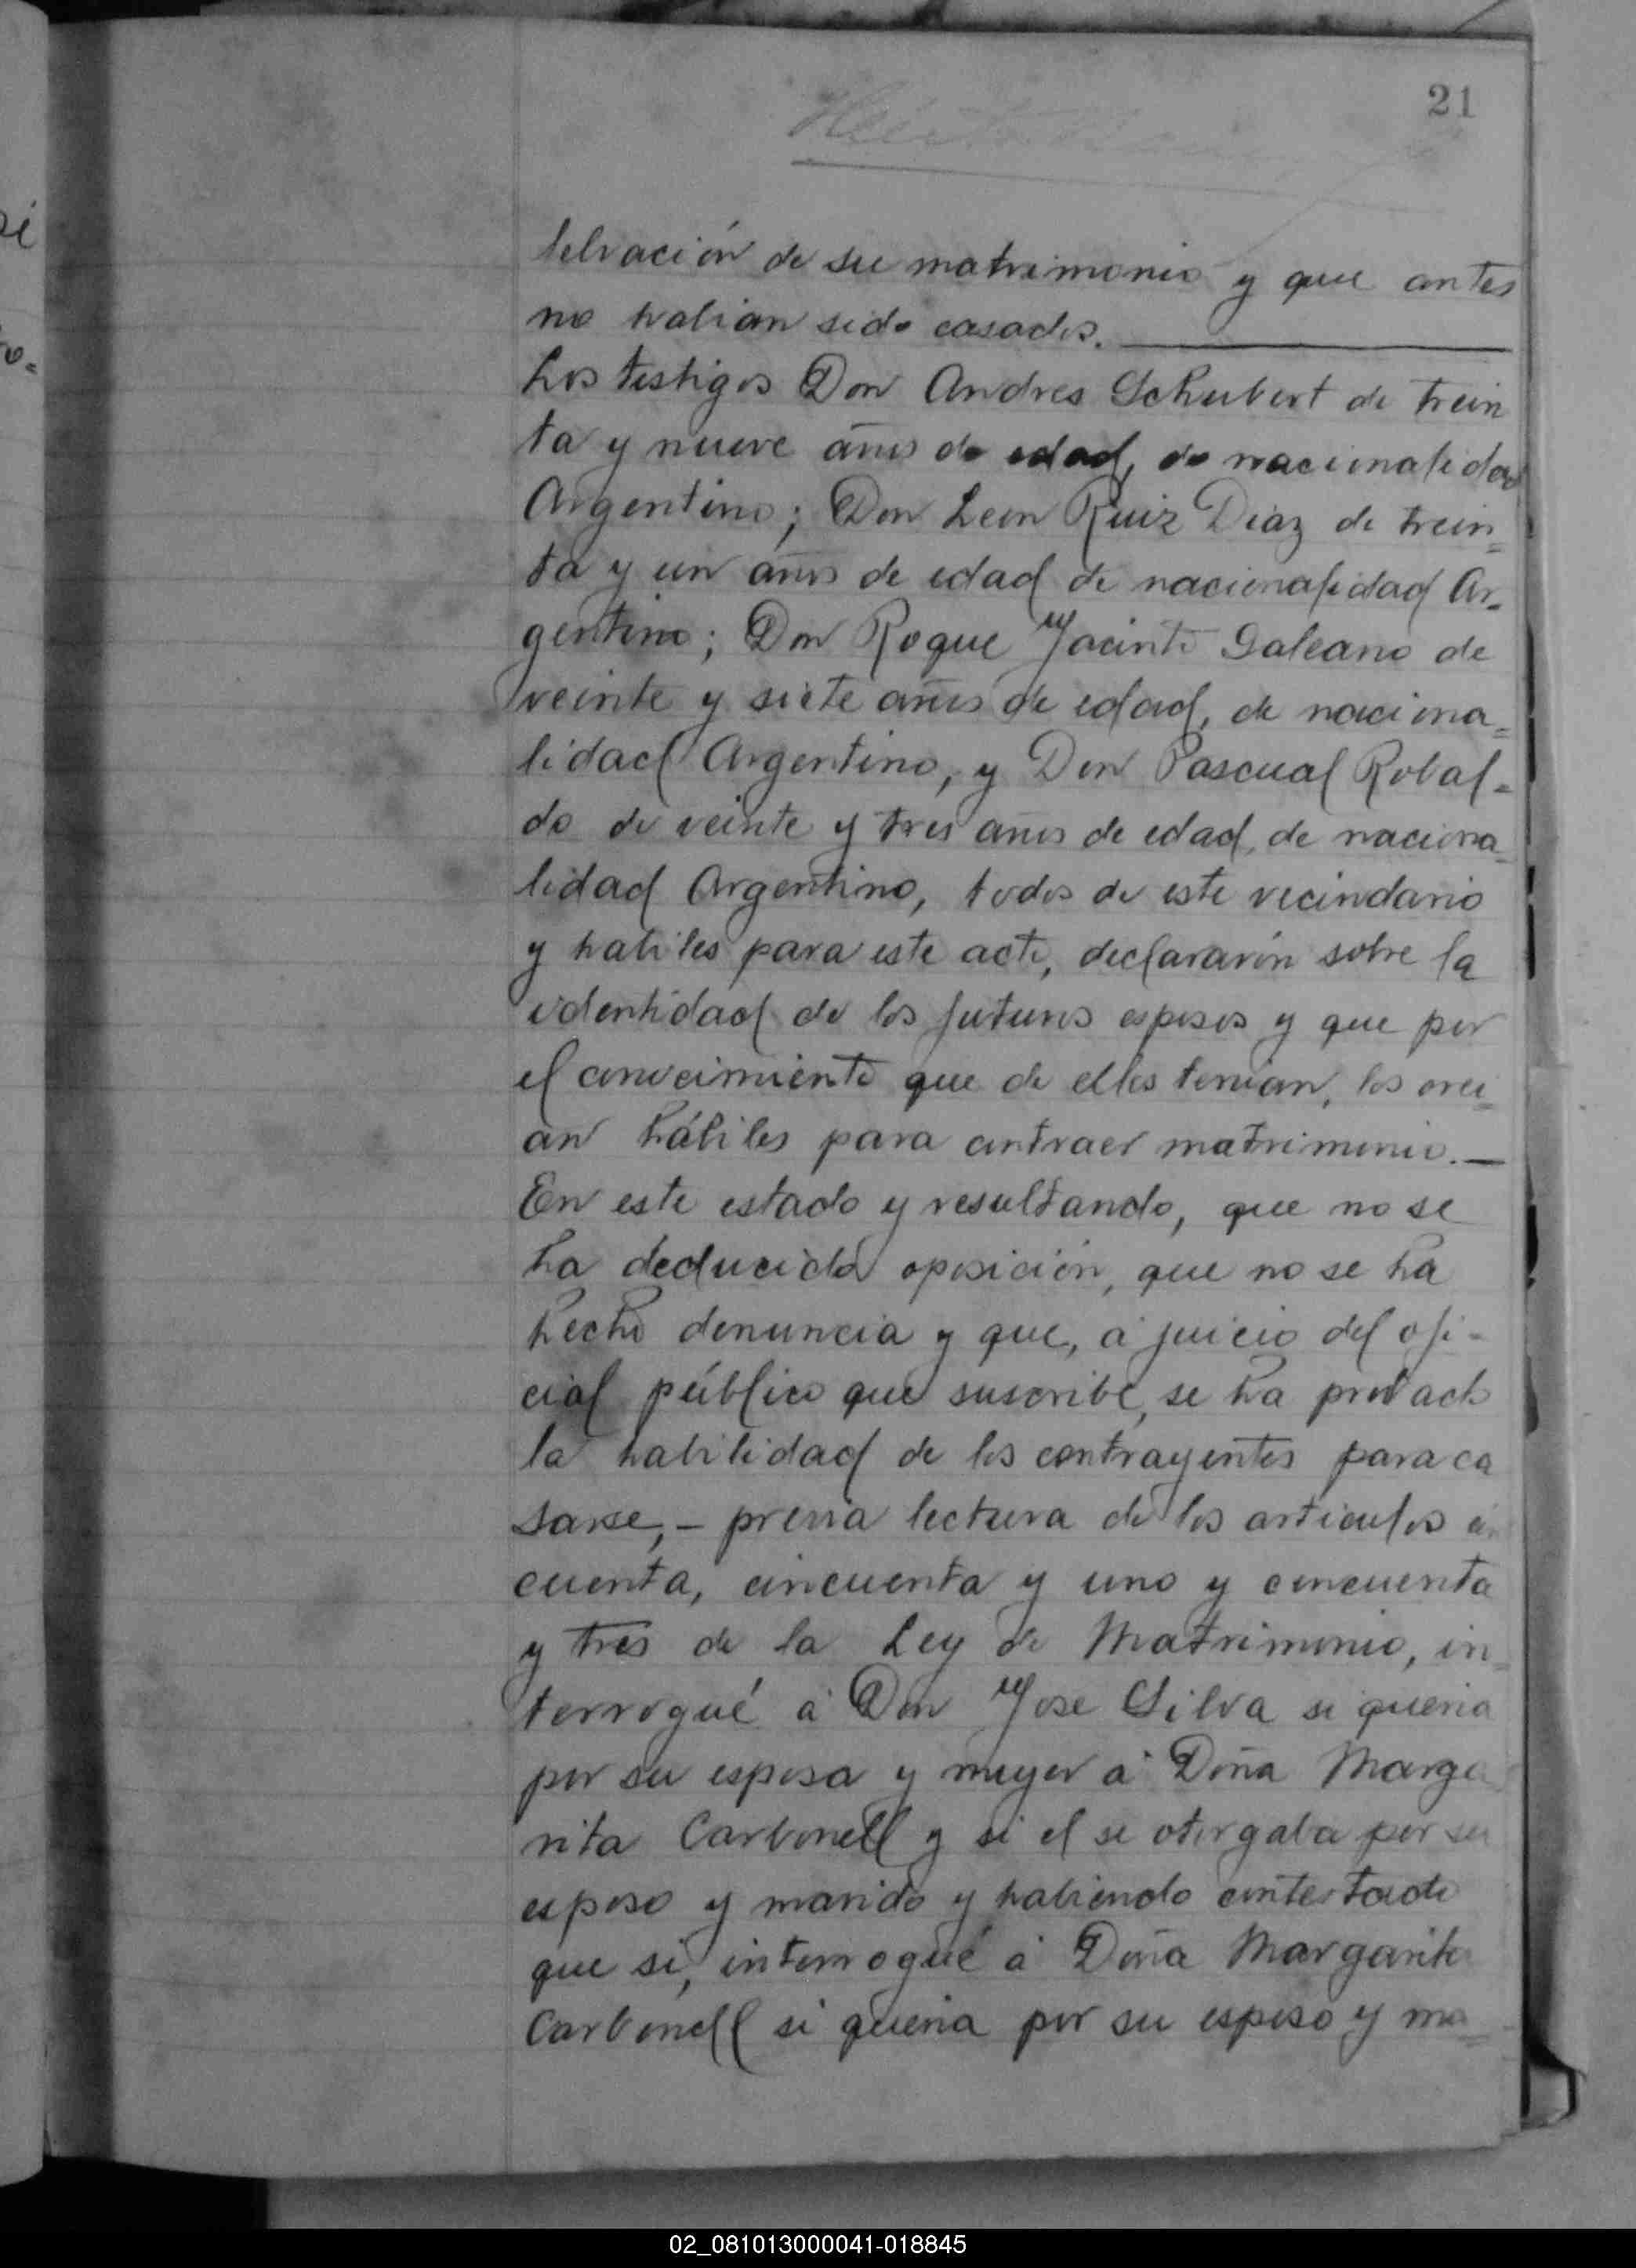 21
lelvación de su matrimonio y que antes
no habian sido casados.
Los testigos Don Andres Schubert de trein
ta y nueve años de edad, de nacionalidad
Argentino; Don Leon Ruiz Diaz de trein=
ta y un años de edad de nacionalidad Ar=
gentino; Don Roque Jacinto Galeano de
veinte y siete años de edad, de naciona=
lidad Argentino, y Don Pascual Robal=
do de veinte y tres años de edad, de naciona=
lidad Argentino, todos de este vecindario
y habiles para este acto, declararón sobre la
identidad de los futuros esposos y que por
el conocimiento que de ellos tenian, los crei=
an hábiles para contraer matrimonio.—
En este estado y resultando, que no se
ha deducido oposición, que no se ha
hecho denuncia y que, á juicio del ofi=
cial público que suscribe, se ha probado
la habilidad de los contrayentes para ca
sarse,– previa lectura de los articulos cin
cuenta, cincuenta y uno y cincuenta
y tres de la Ley de Matrimonio, in=
terrogué á Don Jose Silva si queria
por su esposa y mujer á Doña Marga
rita Carbonell y si el se otorgaba por su
esposo y marido y habiendo contestado
que si, interrogué á Doña Margarita
Carbonell si queria por su esposo y ma=
02_081013000041-018845